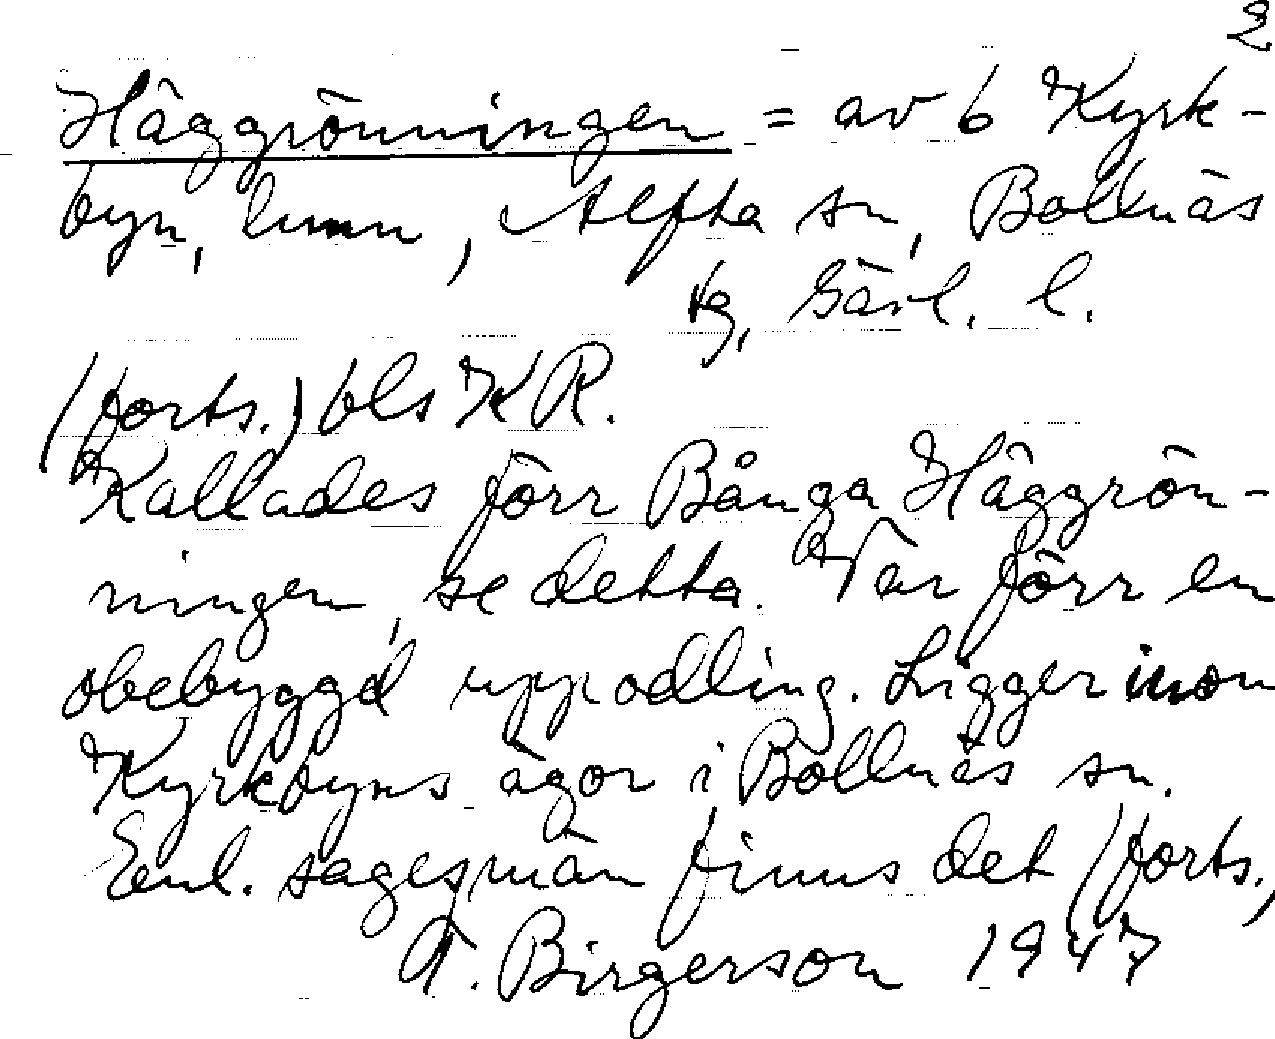 2
Häggrönningen = av 6 Kyrk-
byn, lunn, Alfta sn, Bollnäs
tg, Gävl. l.
(forts.) bls KR.
Kallades förr Bånga Häggrön-
ningen, se detta. Var förr en
obebyggd uppodling. Ligger inom
Kyrkbyns ägor i Bollnäs sn.
Enl. sagesmän finns det (forts.)
T. Birgerson 1947